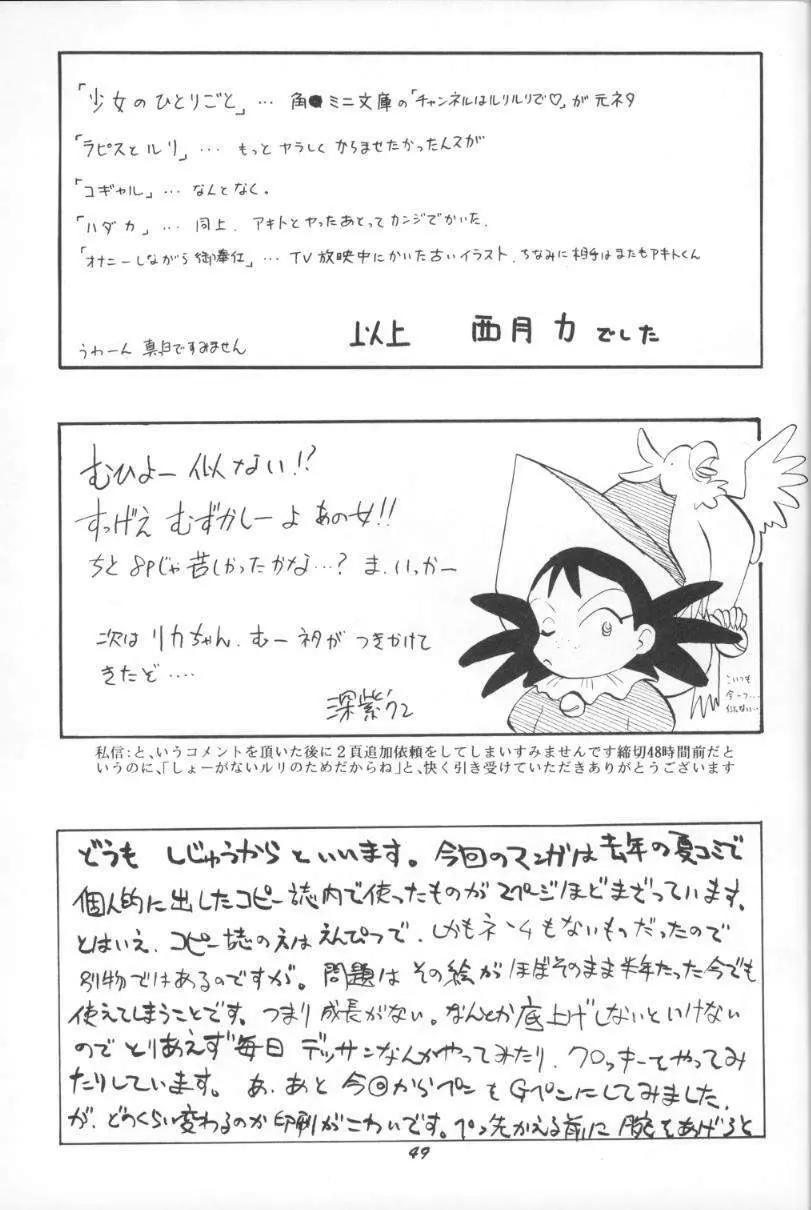 「少女のひとりごと」… 角●ミニ文庫の「チャンネルはルリルリで♡」が元ネタ
「ラピスとルリ」… もっとヤラしくからませたかったんスが
「コギャル」… なんとなく。
「ハダカ」… 同上、アキトとヤったあとってカンジでかいた。
「オナニーしながら御奉仕」… TV放映中にかいた古いイラスト、ちなみに相手はまたもアキトくん
以上 西月力でした
うわーん 真白ですみません
むひょー 似ない!?
すっげえ むずかしーよ あの女!!
ちと8Pじゃ苦しかったかな…? ま、いっかー
次は リカちゃん、むー ネタが つきかけて
きたぞ‥‥
深紫クレ
こいつも
今一つ…
似ない…
私信:と、いうコメントを頂いた後に2頁追加依頼をしてしまいすみませんです締切48時間前だと
いうのに、「しょーがないルリのためだからね」と、快く引き受けていただきありがとうございます
どうも しじゅうから といいます。今回のマンガは去年の夏コミで
個人的に出したコピー誌内で使ったものが2ページほどまざっています。
とはいえ、コピー誌のえはえんぴつで、しかもネームもないものだったので
別物ではあるのですが。問題は その絵が ほぼそのまま半年たった今でも
使えてしまうことです。つまり成長がない。なんとか底上げしないといけない
ので とりあえず毎日 デッサンなんかやってみたり、クロッキーをやってみ
たりしています。あ、あと 今回からペンもGペンにしてみました
が、どのくらい変わるのか印刷がこわいです。ペン先かえる前に 腕をあげろと
49